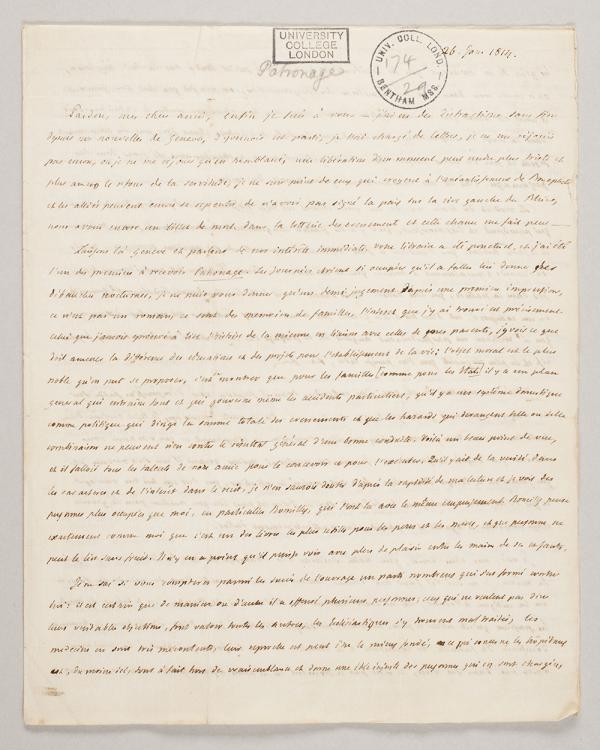 UNIVERSITY
COLLEGE
LONDON
Patronage
UNIV. COLL. LOND.
BENTHAM MSS.
174
29
26 Jan 1814.
Pardon, mes chers amis, enfin je suis à vous — j'ai eu des distractions sans fin
depuis nos nouvelles de Genève, d'Ivernois est parti, je suis chargé de lettres, je ne me réjouis
pas encor, ou je ne me réjouis qu'en tremblant, une libération d'un moment peut rendre plus triste et
plus amer le retour de la servitude, je ne suis point de ceux qui croyent à l'anéantissement de Bonaparte
et les alliés peuvent encore se repentir de n'avoir pas signé la paix sur la rive gauche du Rhin,
nous avons encore un billet de mort dans la lotterie des evenemens et cette chance me fait peur —
Laissons là Genève et parlons de nos intérêts immédiats, votre libraire a été ponctuel, et j'ai été
l'un des premiers à recevoir Patronage. Les journées étoient si occupées qu'il a fallu lui donner
d'abord les nocturnes, je ne puis vous donner qu'un demi jugement d'après une première impression,
ce n'est pas un roman, ce sont des mémoires de familles, l'intérêt que j'y ai trouvé est précisément
celui que j'aurois éprouvé à lire l'histoire de la mienne en liaison avec celles de mes parents, j'y vois ce que
doit amener la différence des éducations et des projets pour l'établissement de la vie; l'objet moral est le plus
noble qu'on put se proposer, c'est montrer que pour les familles [comme pour les Etats] il y a un plan
general qui entraine tout et qui gouverne même les accidents particuliers, qu'il y a un système domestique
comme politique qui dirige la somme totale des evenements et que les hazards qui derangent telle ou telle
combinaison ne peuvent rien contre le résultat général d'une bonne conduite. Voilà un beau point de vue,
et il falloit tous les talents de notre amie pour le concevoir et pour l'exécuter. Qu'il y ait de la verité dans
les caracteres et de l'intérêt dans le récit, je n'en saurois douter d'après la rapidité de ma lecture et je vois des
personnes plus occupées que moi, en particulier Romilly, qui l'ont lu avec le même empressement. Romilly pense
exactement comme moi que c'est un des livres les plus utiles pour les peres et les meres, et que personne ne
peut le lire sans fruit. Il n'y en a point qu'il puisse voir avec plus de plaisir entre les mains de ses enfants.
Je ne sai si vous compterez parmi les succès de l'ouvrage un parti nombreux qui s'est formé contre
lui: il est certain que de maniere ou d'autre il a offensé plusieurs personnes, ceux qui ne veulent pas dire
leurs veritables objections, font valoir toutes les autres, les Ecclésiastiques s'y trouvent mal traités, les
medecins en sont très mécontents, leur reproche est peut être le mieux fondé, ce qui concerne les hôpitaux
est, du moins ici, tout à fait hors de vraisemblance et donne une idée injuste des personnes qui en sont chargées,